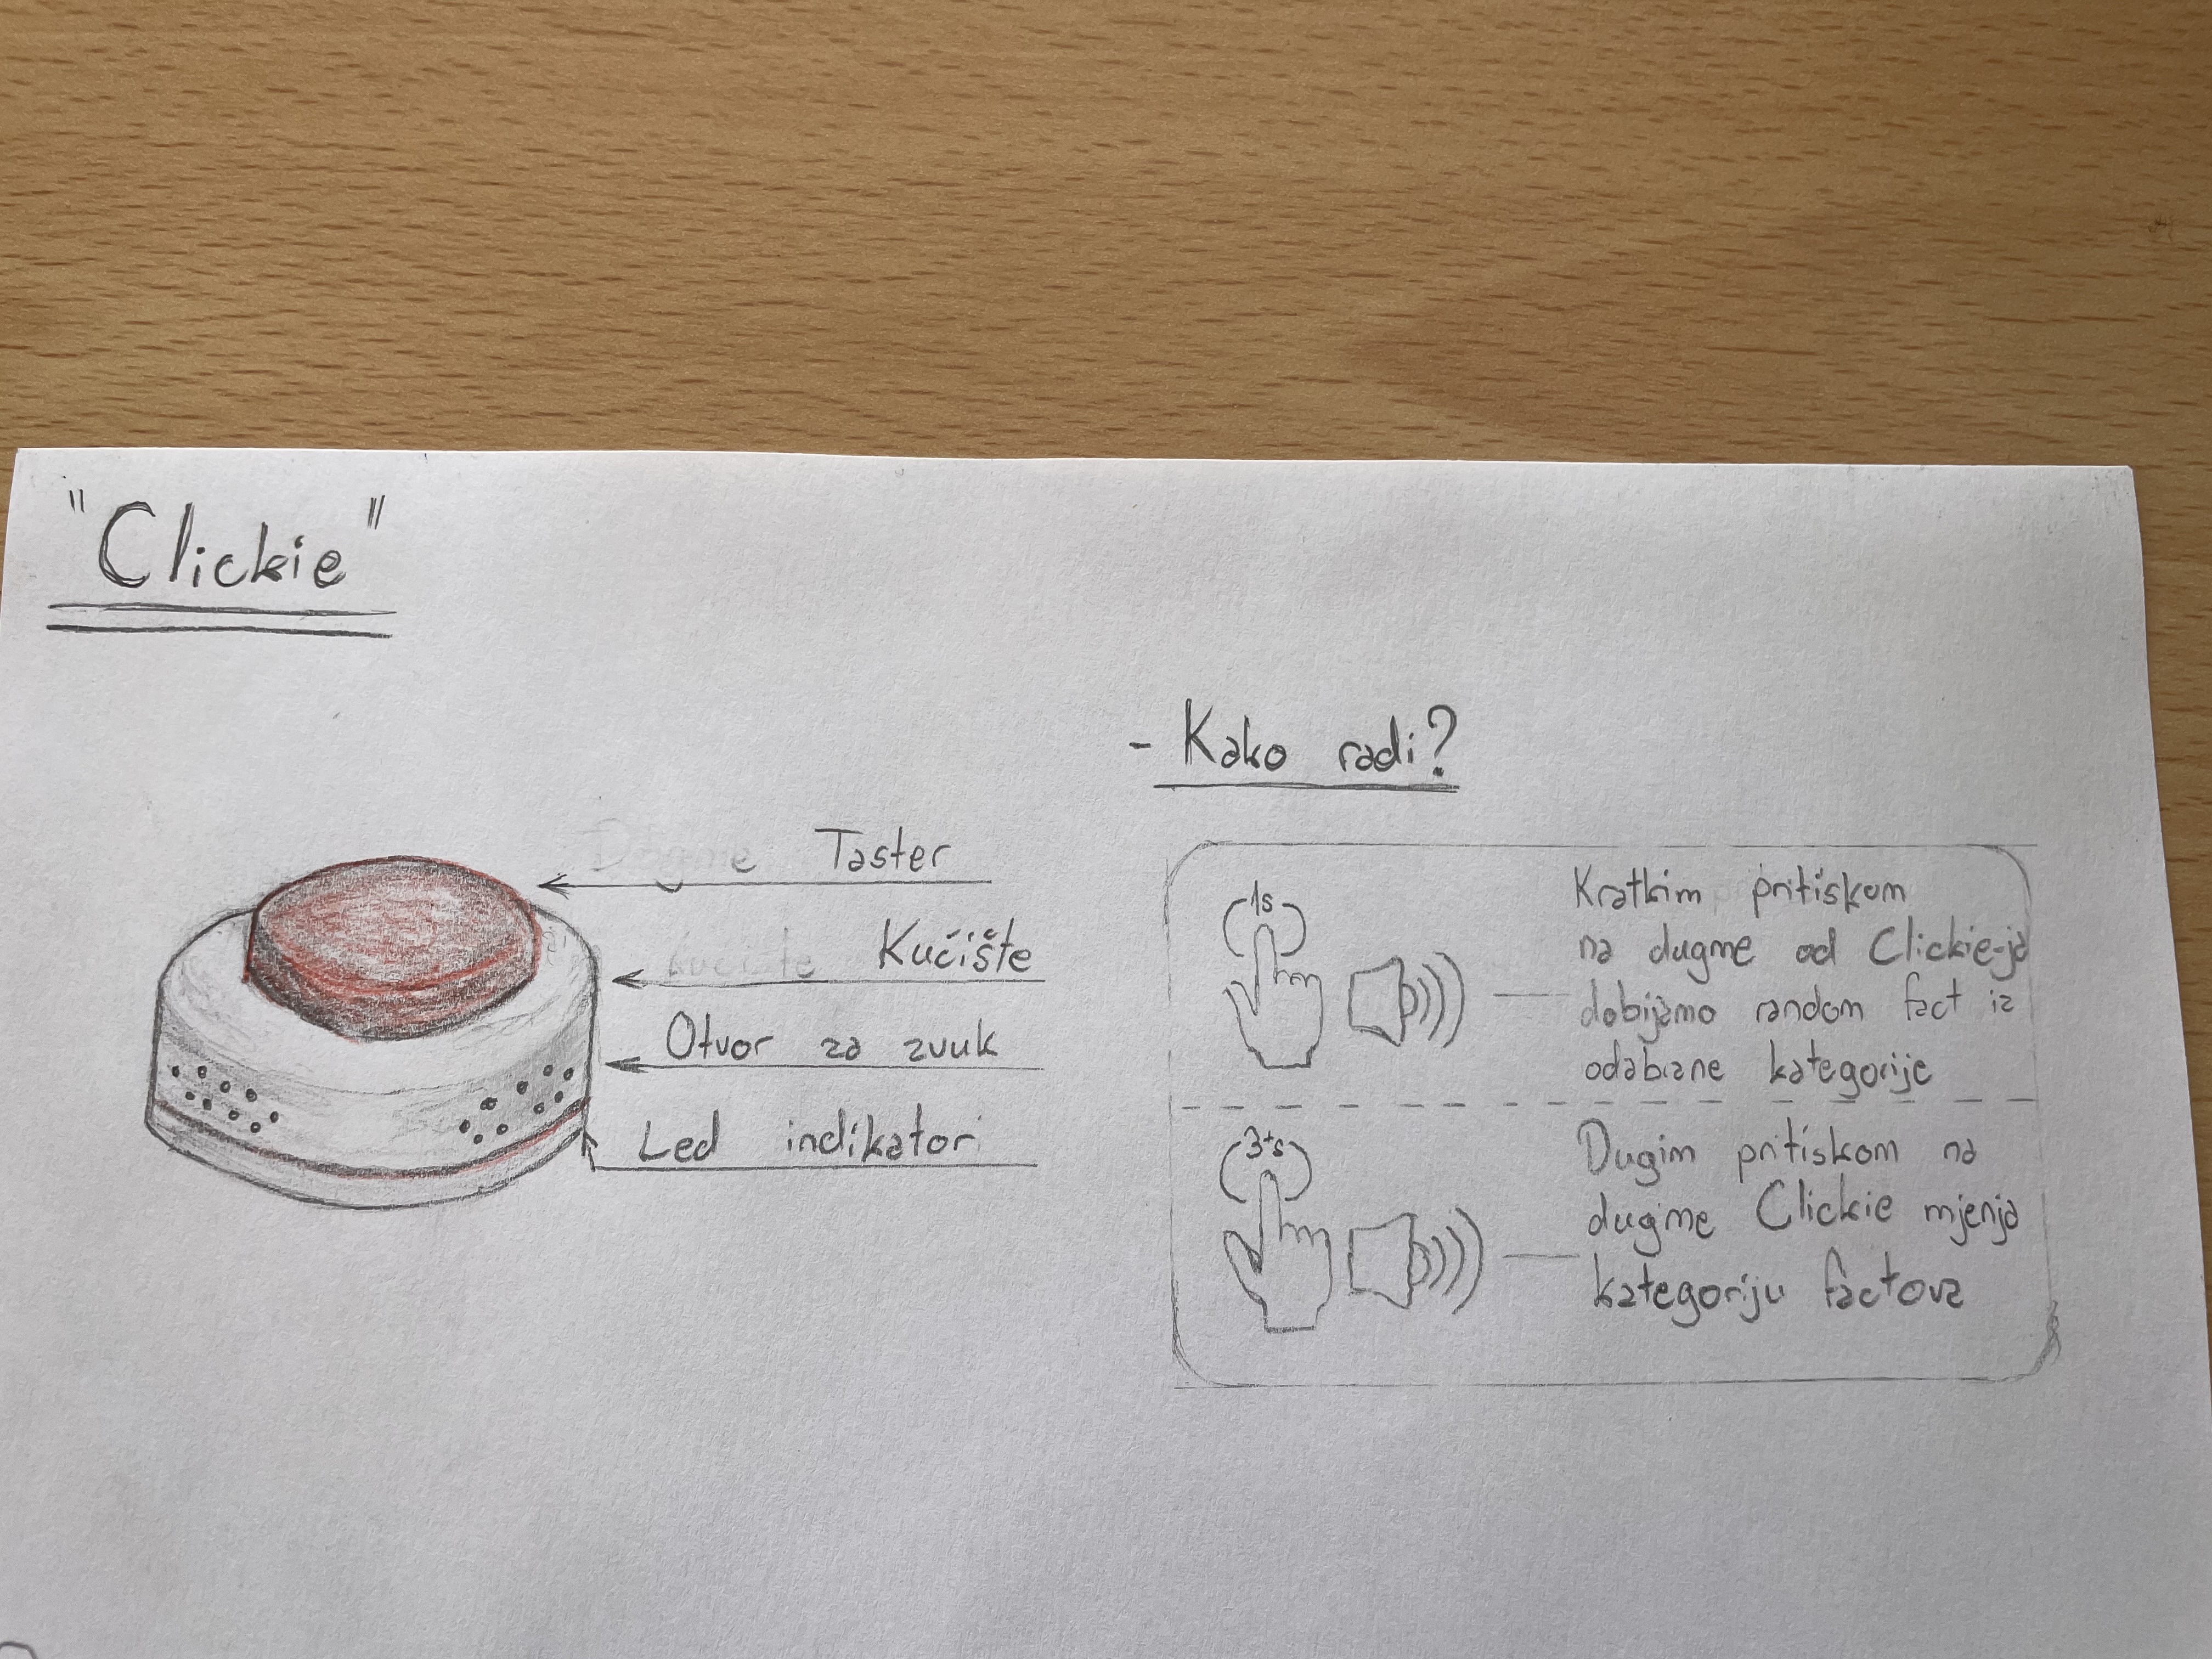 "Clickie"
Dugme Taster
Kućište Kućište
Otvor za zvuk
Led indikatori
- Kako radi?
1s
Kratkim pritiskom
na dugme od Clickie-ja
dobijamo random fact iz
odabrane kategorije
3+s
Dugim pritiskom na
dugme Clickie mjenja
kategoriju factova